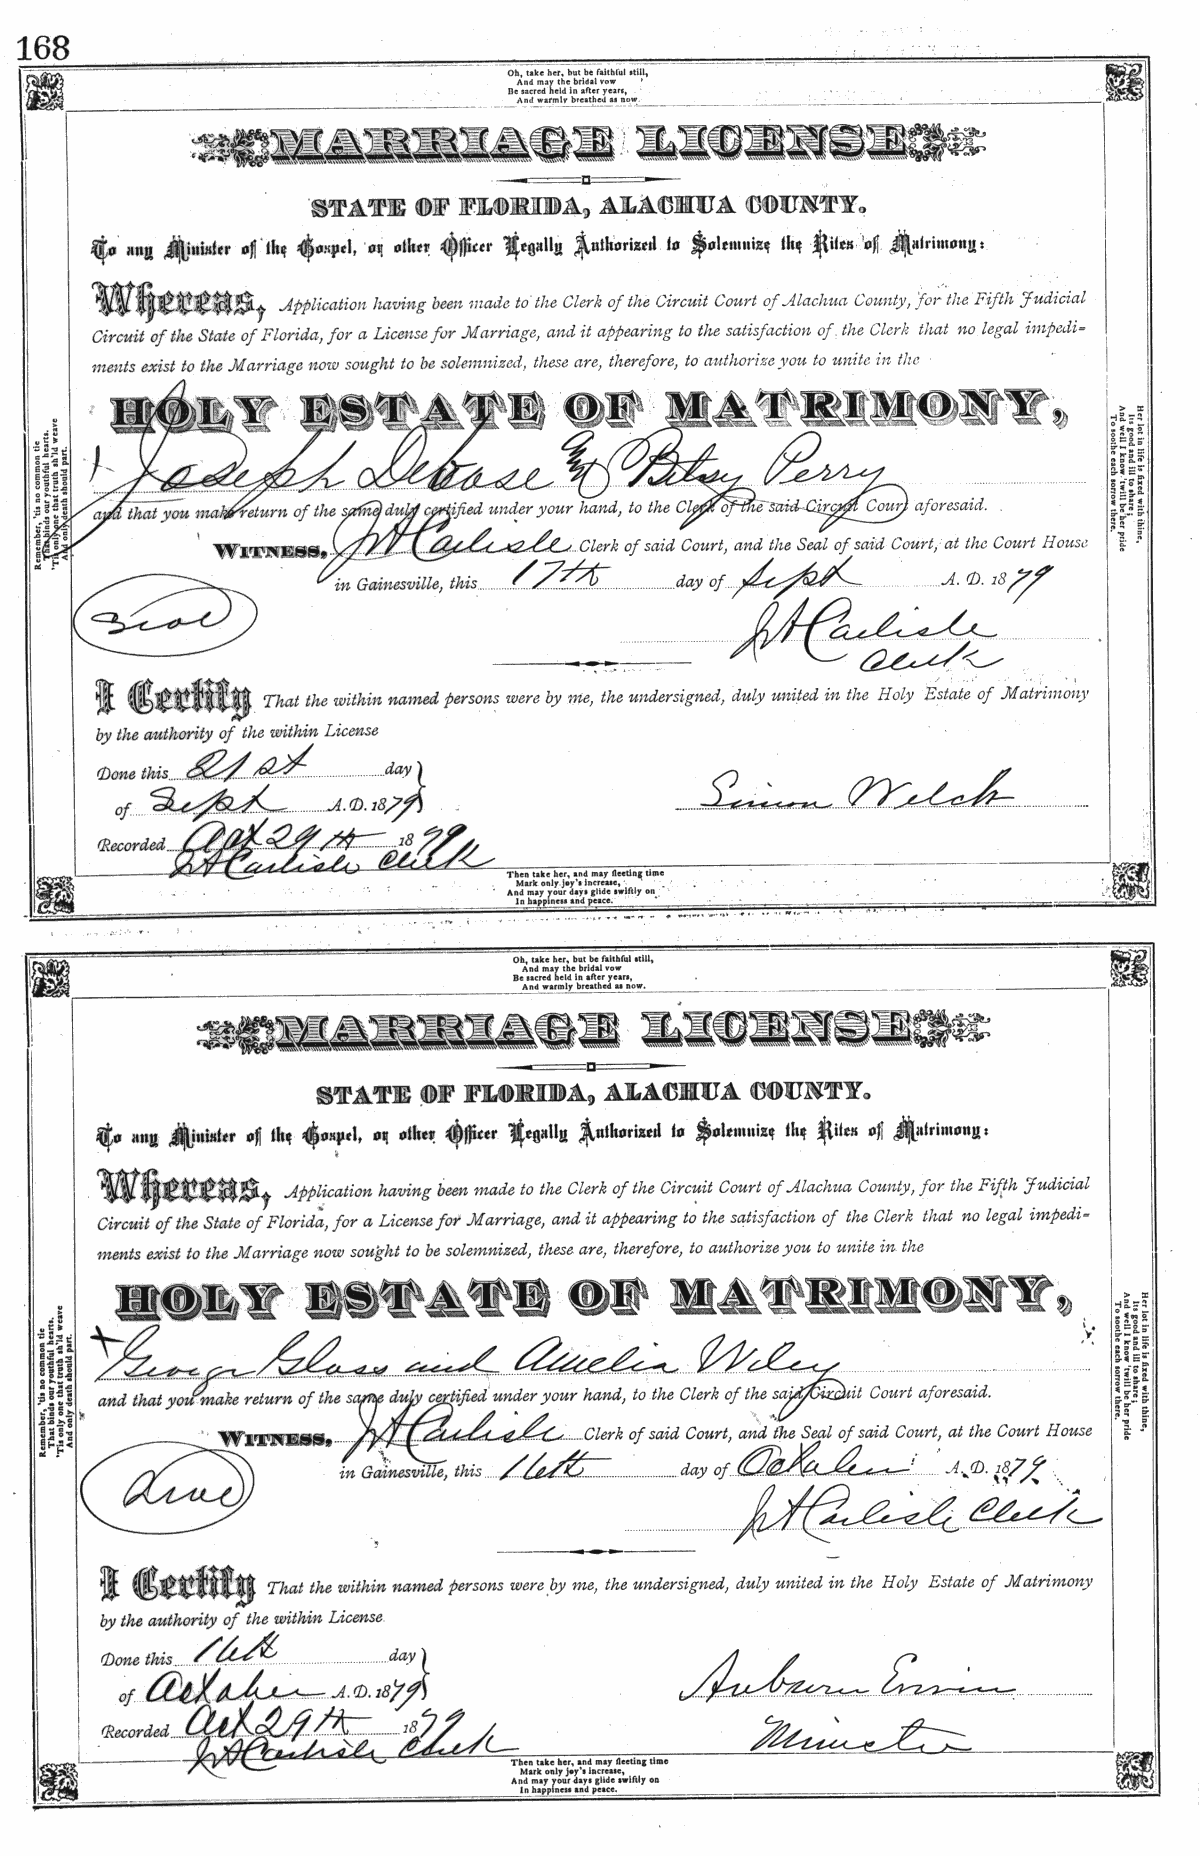 168
Oh, take her, but be faithful still,
And may the bridal vow
Be sacred held in after years,
And warmly breathed as now.
MARRIAGE LICENSE
STATE OF FLORIDA, ALACHUA COUNTY.
To any Minister of the Gospel, or other Officer Legally Authorized to Solemnize the Rites of Matrimony:
Whereas, Application having been made to the Clerk of the Circuit Court of Alachua County, for the Fifth Judicial
Circuit of the State of Florida, for a License for Marriage, and it appearing to the satisfaction of the Clerk that no legal impedi-
ments exist to the Marriage now sought to be solemnized, these are, therefore, to authorize you to unite in the
HOLY ESTATE OF MATRIMONY,
Joseph Debose and Betsy Perry
and that you make return of the same duly certified under your hand, to the Clerk of the said Circuit Court aforesaid.
WITNESS, J A Carlisle Clerk of said Court, and the Seal of said Court, at the Court House
in Gainesville, this 17th day of Sept A. D. 1879
Seal
J A Carlisle
Clerk
I Certify That the within named persons were by me, the undersigned, duly united in the Holy Estate of Matrimony
by the authority of the within License
Done this 21st day
of Sept A.D. 1879
Simon Welch
Recorded Oct 29th 1879
J A Carlisle Clerk
Remember, 'tis no common tie
That binds our youthful hearts.
'Tis only one that truth sh'ld weave
And only death should part.
Her lot in life is fixed with thine,
Its good and ill to share;
And well I know 'twill be her pride
To soothe each sorrow there.
Then take her, and may fleeting time
Mark only joy's increase,
And may your days glide swiftly on
In happiness and peace.
Oh, take her, but be faithful still,
And may the bridal vow
Be sacred held in after years,
And warmly breathed as now.
MARRIAGE LICENSE
STATE OF FLORIDA, ALACHUA COUNTY.
To any Minister of the Gospel, or other Officer Legally Authorized to Solemnize the Rites of Matrimony:
Whereas, Application having been made to the Clerk of the Circuit Court of Alachua County, for the Fifth Judicial
Circuit of the State of Florida, for a License for Marriage, and it appearing to the satisfaction of the Clerk that no legal impedi-
ments exist to the Marriage now sought to be solemnized, these are, therefore, to authorize you to unite in the
HOLY ESTATE OF MATRIMONY,
George Glass and Amelia Wiley
and that you make return of the same duly certified under your hand, to the Clerk of the said Circuit Court aforesaid.
WITNESS, J A Carlisle Clerk of said Court, and the Seal of said Court, at the Court House
in Gainesville, this 16th day of October A. D. 1879
Seal
J A Carlisle Clerk
I Certify That the within named persons were by me, the undersigned, duly united in the Holy Estate of Matrimony
by the authority of the within License
Done this 16th day
of October A.D. 1879
Auburn Erwin
Recorded Oct 29th 1879
Minister
J A Carlisle Clerk
Remember, 'tis no common tie
That binds our youthful hearts.
'Tis only one that truth sh'ld weave
And only death should part.
Her lot in life is fixed with thine,
Its good and ill to share;
And well I know 'twill be her pride
To soothe each sorrow there.
Then take her, and may fleeting time
Mark only joy's increase,
And may your days glide swiftly on
In happiness and peace.